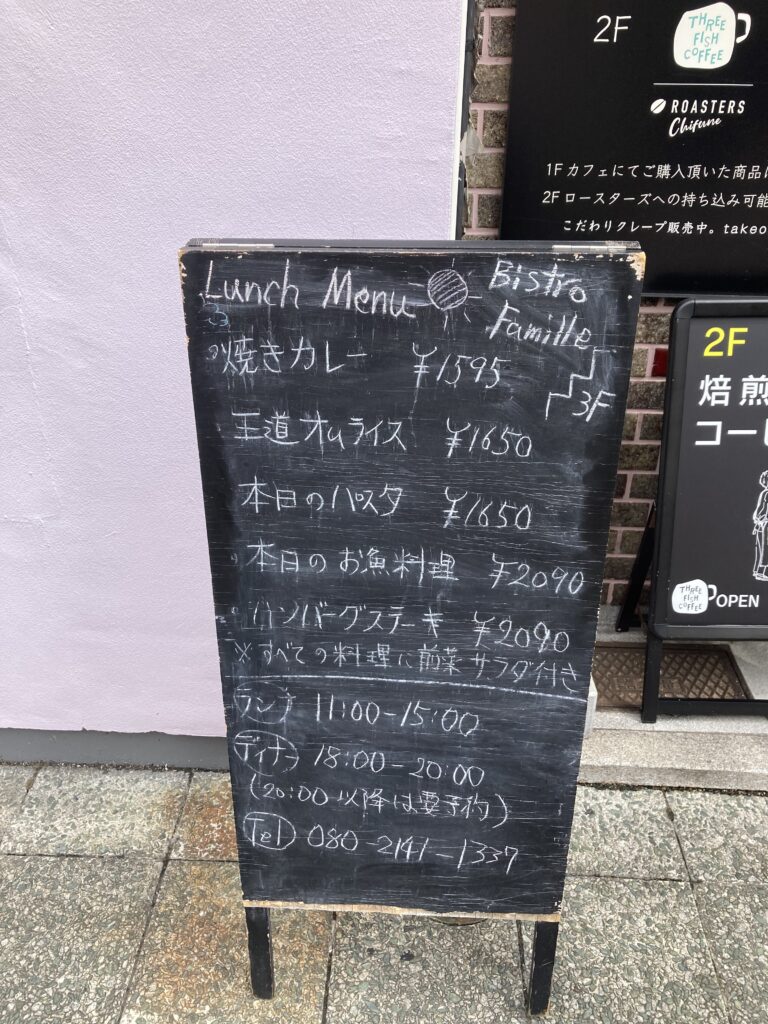 2F
THREE
FISH
COFFEE
ROASTERS
Chifune
1Fカフェにてご購入頂いた商品
2Fロースターズへの持ち込み可能
こだわりクレープ販売中。takeo
Lunch Menu
Bistro
Famille
3F
焼きカレー ¥1595
王道オムライス ¥1650
本日のパスタ ¥1650
本日のお魚料理 ¥2090
ハンバーグステーキ ¥2090
※すべての料理に前菜サラダ付き
ランチ 11:00-15:00
ディナー 18:00-20:00
(20:00以降は要予約)
Tel 080-2141-1337
2F
焙煎
コー
THREE
FISH
COFFEE
OPEN